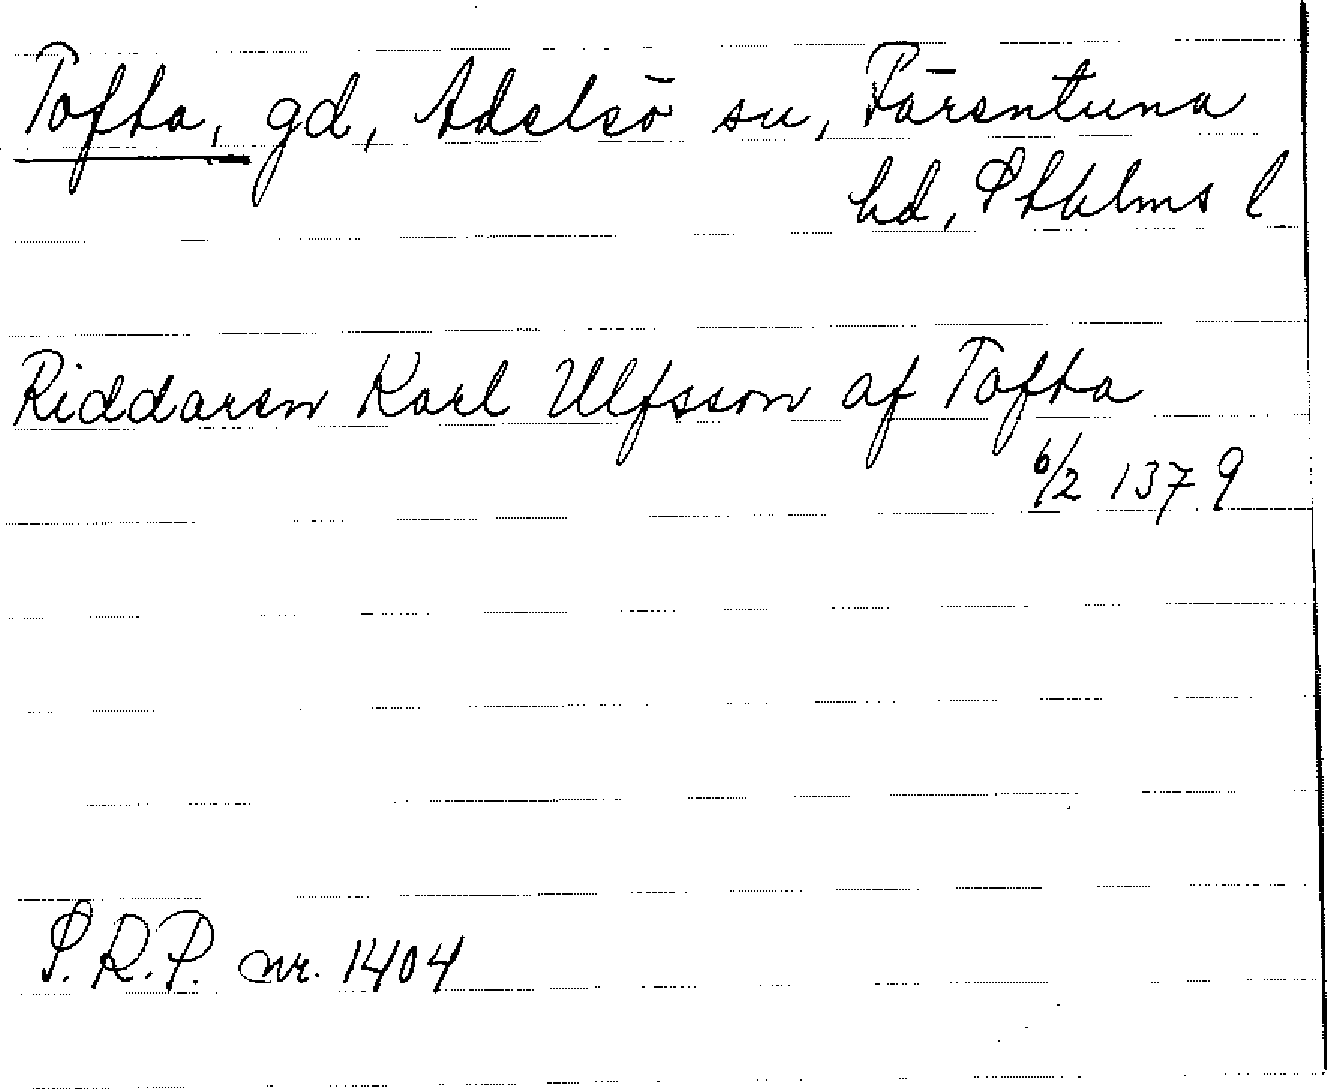 Tofta, gd, Adelsö sn, Färentuna
hd, Sthlms l
Riddaren Karl Ulfsson af Tofta
6/2 1379
S.R.P. nr. 1404